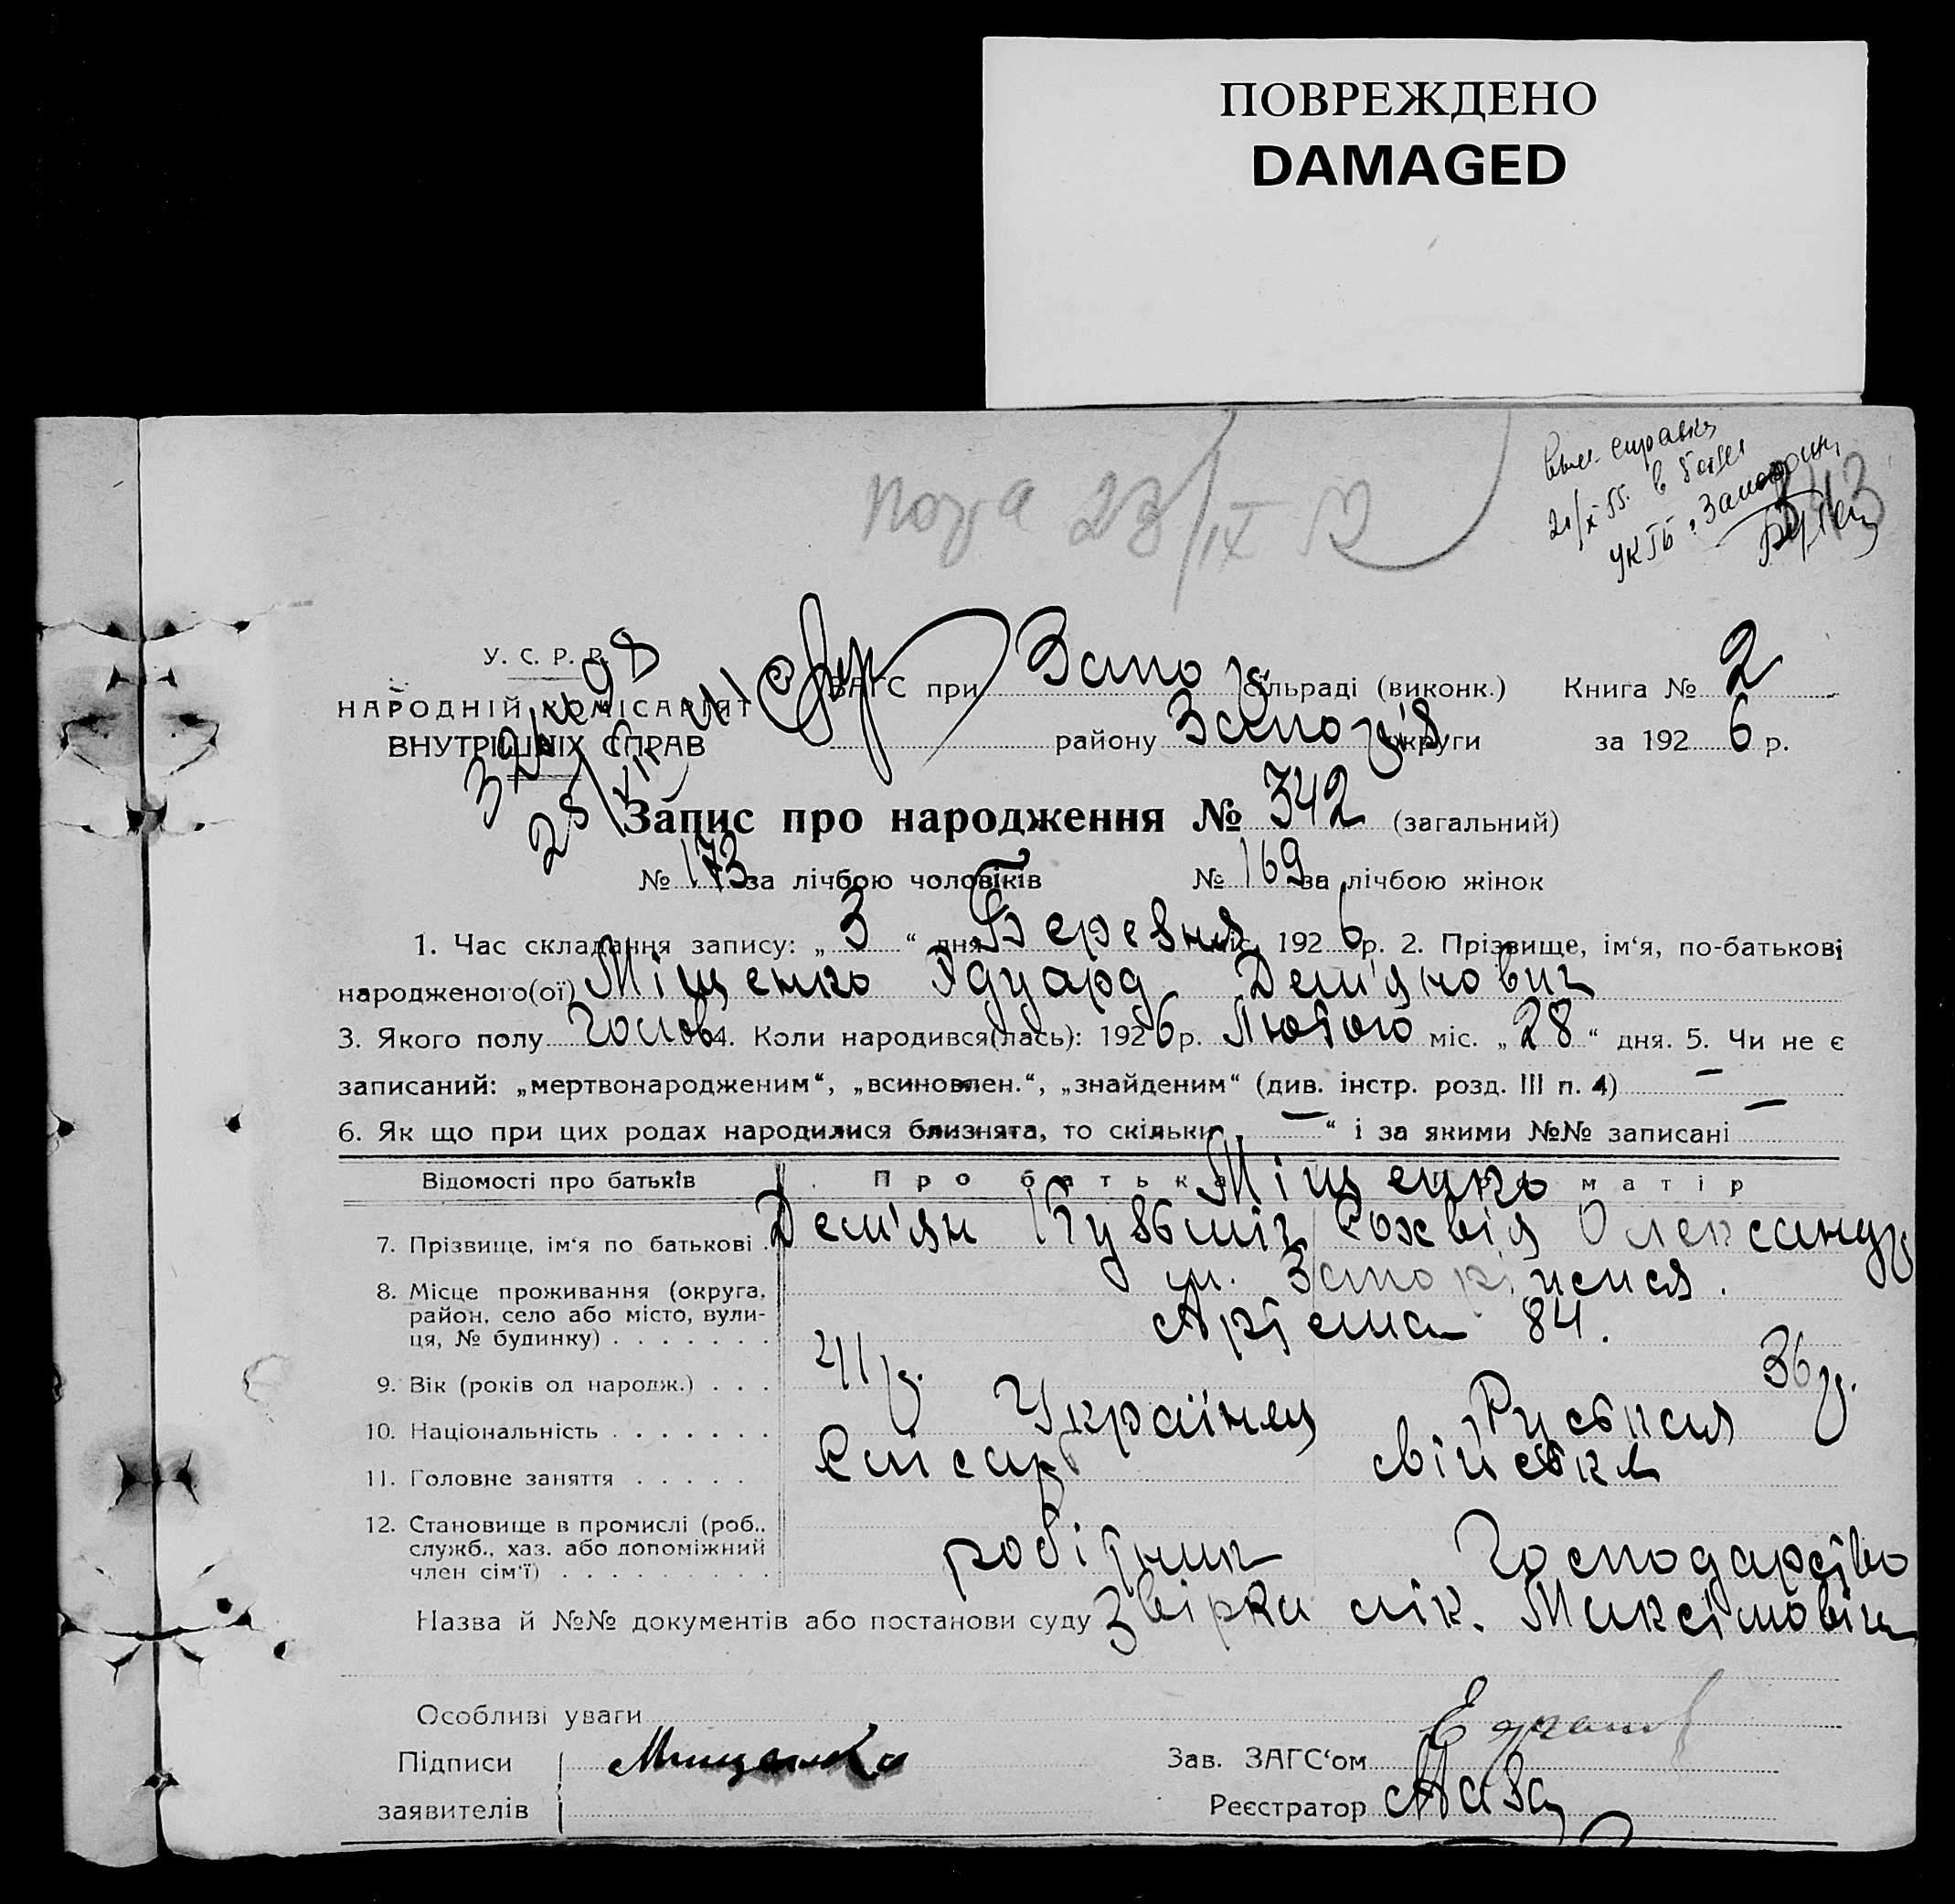 ПОВРЕЖДЕНО
DAMAGED
23/IX
21/X 55. в
УКГБ г. Запор
У. С. Р. Р.
НАРОДНІЙ КОМІСАРІЯТ
ВНУТРІШНІХ СПРАВ
ЗАГС при Запо сільраді (виконк.) Книга № 2
району Запо округи за 1926 р.
Запис про народження № 342 (загальний)
№ 173 за лічбою чоловіків № 169 за лічбою жінок
1. Час складання запису: „3“ дня Березня міс. 1926 р. 2. Прізвище, ім‘я, по-батькові
народженого(ої) Міщенко Эдуард Дем'янович
3. Якого полу Чолов 4. Коли народився(лась): 1926 р. Лютого міс. „28“ дня. 5. Чи не є
записаний: „мертвонародженим“, „всиновлен.“, „знайденим“ (див. інстр. розд. III п. 4) —
6. Як що при цих родах народилися близнята, то скільки — “ і за якими №№ записані —
Відомості про батьків Про батька Міщенко матір
7. Прізвище, ім‘я по батькові Дем'ян Кузьміч Олександр
8. Місце проживання (округа, м. Запоріжжя.
район, село або місто, вули- Артема 84.
ця, № будинку)
9. Вік (років од народж.) 41 р. 36 р.
10. Національність Українец Руська
11. Головне заняття Слісарь свійське
12. Становище в промислі (роб.. робітник Господарство
служб., хаз. або допоміжний
член сім‘ї)
Назва й №№ документів або постанови суду Звірка лік. Максімовіч
Особливі уваги
Підписи Мищенко Зав. ЗАГС‘ом
заявителів Реєстратор